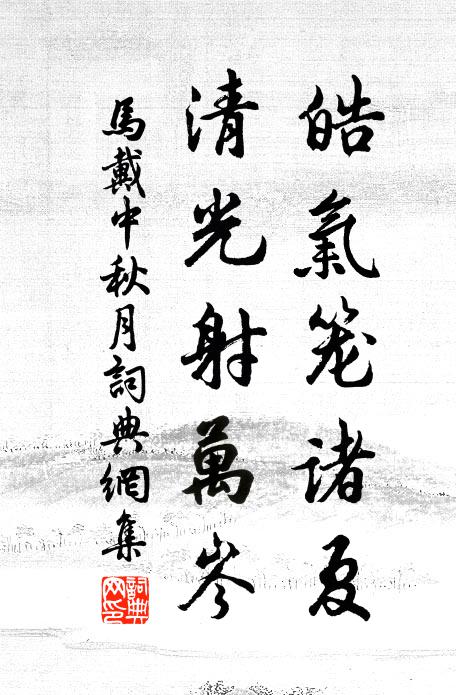 皓氣笼諸夏
清光射萬岑
馬戴中秋月詞典網集
詞典網印